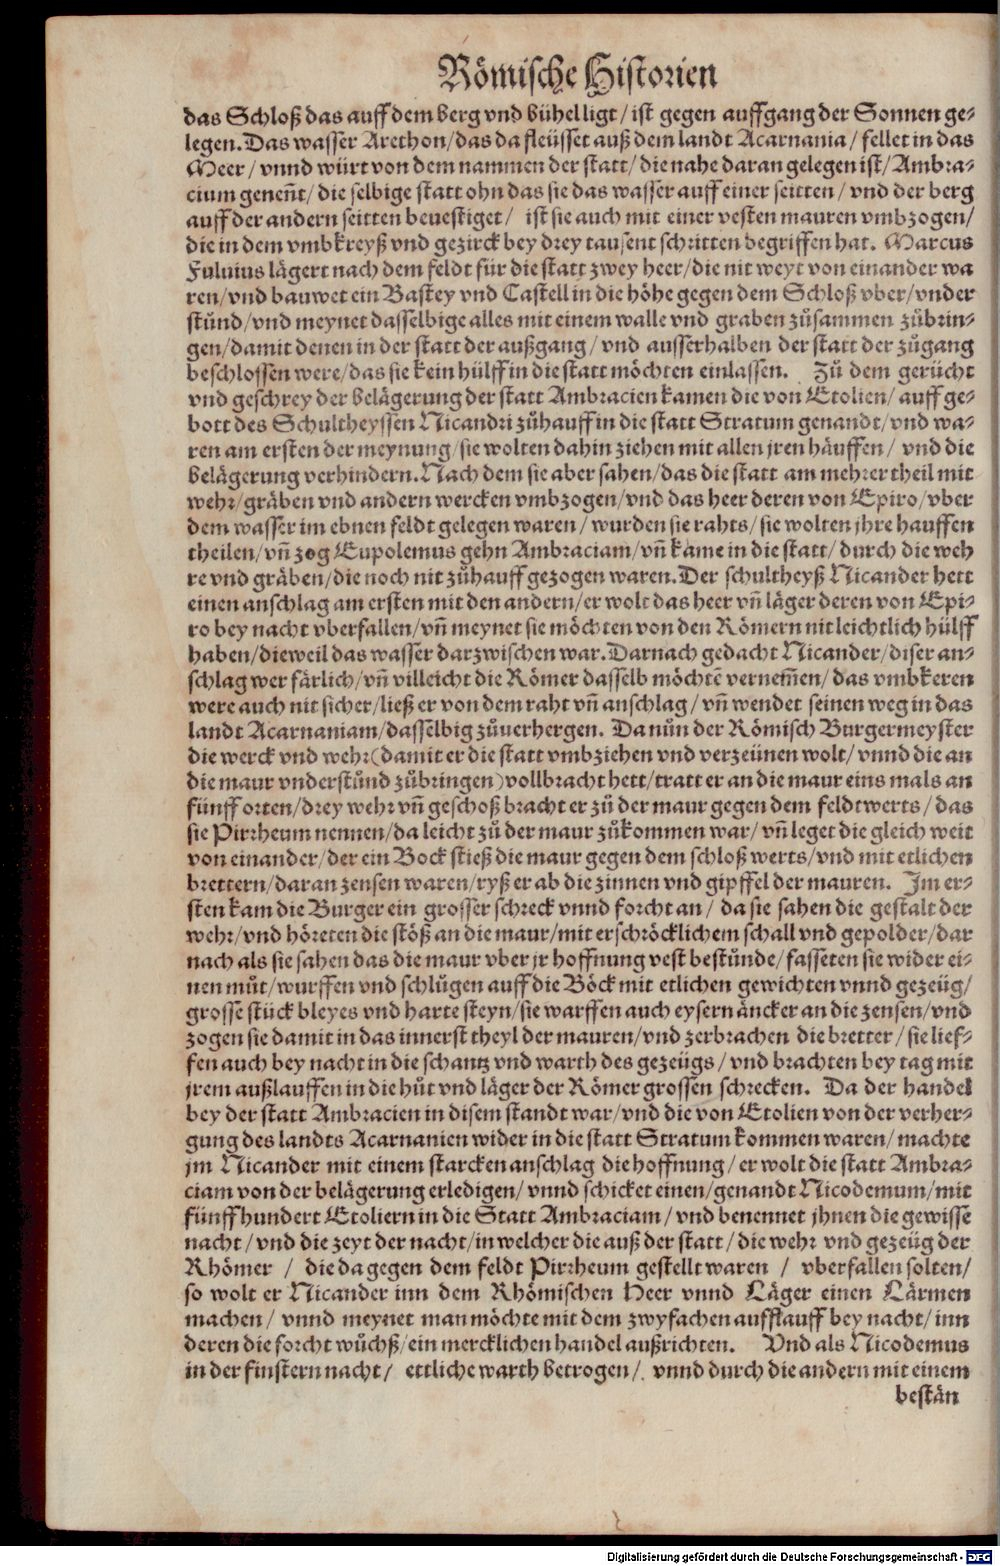 Römische Historien
das Schloß das auff dem berg vnd bühel ligt/ ist gegen auffgang der Sonnen ge⸗
legen. Das wasser Arethon/ das da fleüsset auß dem landt Acarnania/ fellet in das
Meer/ vnnd würt von dem nammen der statt/ die nahe daran gelegen ist/ Ambra⸗
cium geneñt/ die selbige statt ohn das sie das wasser auff einer seitten/ vnd der berg
auff der andern seitten beuestiget/ ist sie auch mit einer vesten mauren vmbzogen/
die in dem vmbkreyß vnd gezirck bey drey tausent schritten begriffen hat. Marcus
Fuluius lägert nach dem feldt für die statt zwey heer/ die nit weyt von einander wa
ren/ vnd bauwet ein Bastey vnd Castell in die höhe gegen dem Schloß vber/ vnder
stůnd/ vnd meynet dasselbige alles mit einem walle vnd graben zůsammen zůbrin⸗
gen/ damit denen in der statt der außgang/ vnd ausserhalben der statt der zůgang
beschlossen were/ das sie kein hülff in die statt möchten einlassen. Zů dem gerücht
vnd geschrey der belägerung der statt Ambracien kamen die von Etolien/ auff ge⸗
bott des Schultheyssen Nicandri zůhauff in die statt Stratum genandt/ vnd wa⸗
ren am ersten der meynung/ sie wolten dahin ziehen mit allen jren häuffen/ vnd die
belägerung verhindern. Nach dem sie aber sahen/ das die statt am mehrer theil mit
wehr/ gräben vnd andern wercken vmbzogen/ vnd das heer deren von Epiro/ vber
dem wasser im ebnen feldt gelegen waren/ wurden sie rahts/ sie wolten jhre hauffen
theilen/ vñ zog Eupolemus gehn Ambraciam/ vñ kame in die statt/ durch die weh
re vnd gräben/ die noch nit zůhauff gezogen waren. Der schultheyß Nicander hett
einen anschlag am ersten mit den andern/ er wolt das heer vñ läger deren von Epi⸗
ro bey nacht vberfallen/ vñ meynet sie möchten von den Römern nit leichtlich hülff
haben/ dieweil das wasser darzwischen war. Darnach gedacht Nicander/ diser an⸗
schlag wer färlich/ vñ villeicht die Römer dasselb möchtē vernem̃en/ das vmbkeren
were auch nit sicher/ ließ er von dem raht vñ anschlag/ vñ wendet seinen weg in das
landt Acarnaniam/ dasselbig zůuerhergen. Da nůn der Römisch Burgermeyster
die werck vnd wehr (damit er die statt vmbziehen vnd verzeünen wolt/ vnnd die an
die maur vnderstůnd zůbringen) vollbracht hett/ tratt er an die maur eins mals an
fünff orten/ drey wehr vñ geschoß bracht er zů der maur gegen dem feldt werts/ das
sie Pirrheum nennen/ da leicht zů der maur zůkommen war/ vñ leget die gleich weit
von einander/ der ein Bock stieß die maur gegen dem schloß werts/ vnd mit etlichen
brettern/ daran zensen waren/ ryß er ab die zinnen vnd gipffel der mauren. Im er⸗
sten kam die Burger ein grosser schreck vnnd forcht an/ da sie sahen die gestalt der
wehr/ vnd höreten die stöß an die maur/ mit erschröcklichem schall vnd gepolder/ dar
nach als sie sahen das die maur vber jr hoffnung vest bestůnde/ fasseten sie wider ei⸗
nen můt/ wurffen vnd schlůgen auff die Böck mit etlichen gewichten vnnd gezeüg/
grosse stück bleyes vnd harte steyn/ sie warffen auch eysern äncker an die zensen/ vnd
zogen sie damit in das innerst theyl der mauren/ vnd zerbrachen die bretter/ sie lief⸗
fen auch bey nacht in die schantz vnd warth des gezeügs/ vnd brachten bey tag mit
jrem außlauffen in die hůt vnd läger der Römer grossen schrecken. Da der handel
bey der statt Ambracien in disem standt war/ vnd die von Etolien von der verher⸗
gung des landts Acarnanien wider in die statt Stratum kommen waren/ machte
jm Nicander mit einem starcken anschlag die hoffnung/ er wolt die statt Ambra⸗
ciam von der belägerung erledigen/ vnnd schicket einen/ genandt Nicodemum/ mit
fünff hundert Etoliern in die Statt Ambraciam/ vnd benennet jhnen die gewisse
nacht/ vnd die zeyt der nacht/ in welcher die auß der statt/ die wehr vnd gezeüg der
Rhömer / die da gegen dem feldt Pirrheum gestellt waren / vberfallen solten/
so wolt er Nicander inn dem Rhömischen Heer vnnd Läger einen Lärmen
machen/ vnnd meynet man möchte mit dem zwyfachen aufflauff bey nacht/ inn
deren die forcht wůchß/ ein mercklichen handel außrichten. Vnd als Nicodemus
in der finstern nacht/ ettliche warth betrogen/ vnnd durch die andern mit einem
bestän
Digitalisierung gefördert durch die Deutsche Forschungsgemeinschaft - DFG